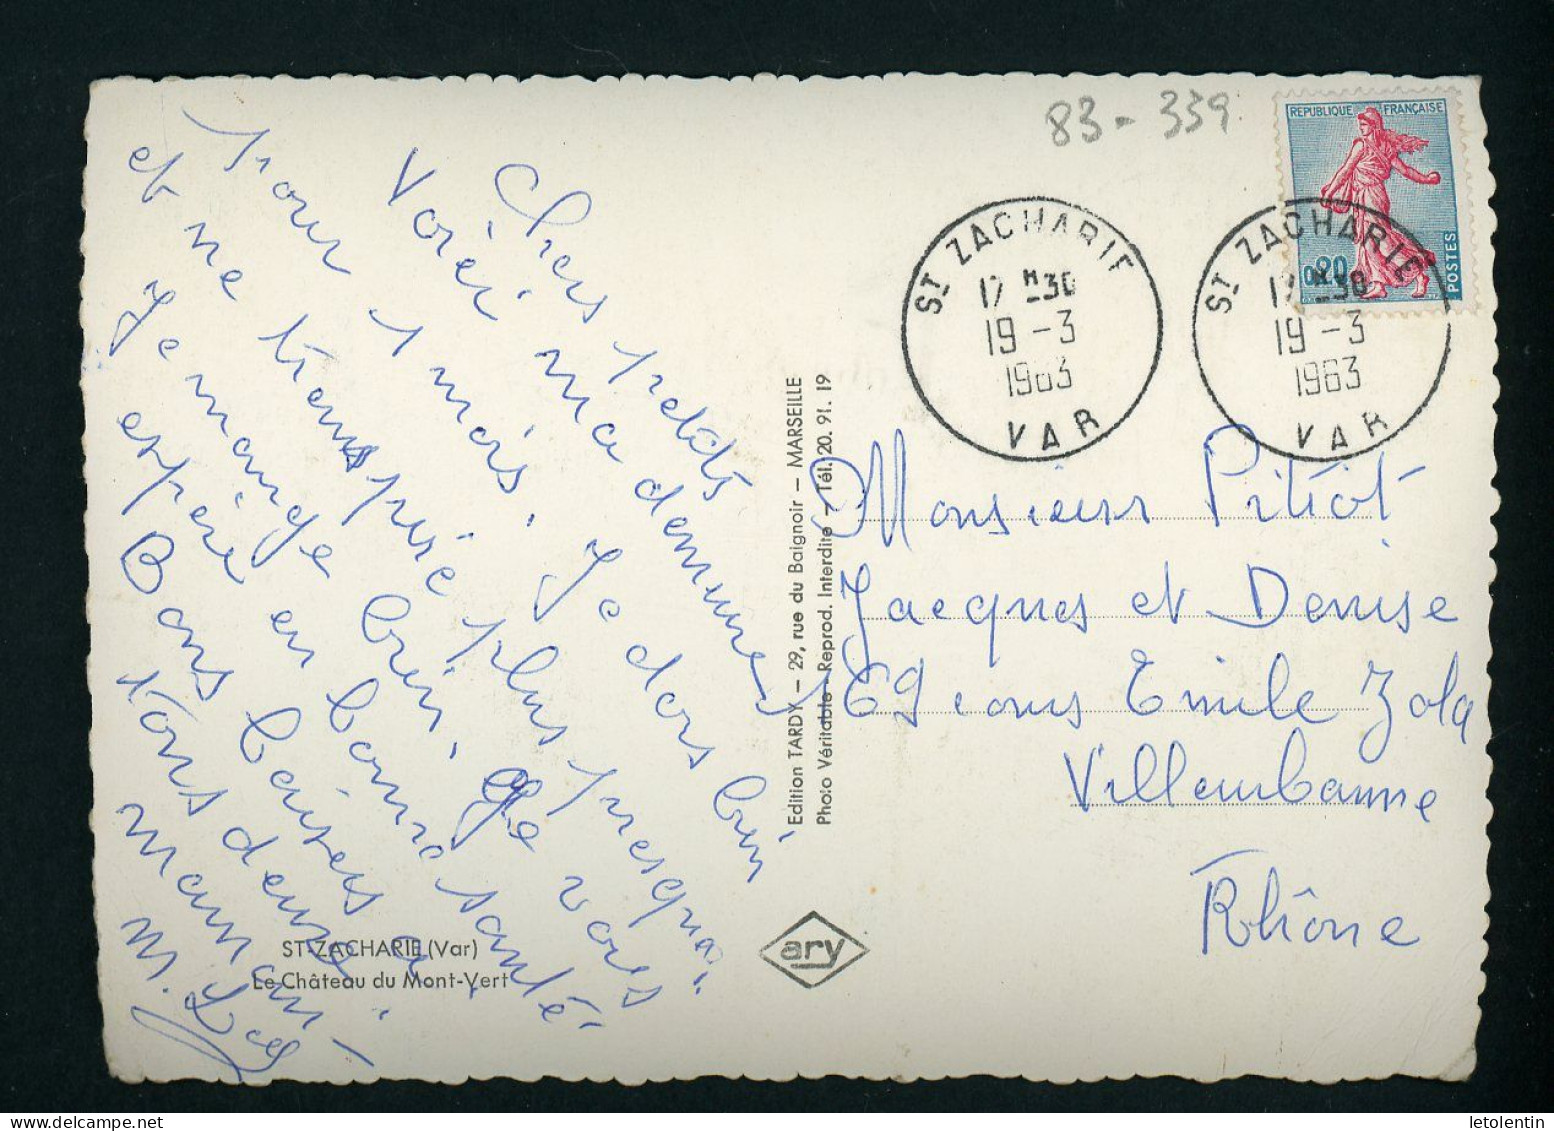 83-339
REPUBLIQUE FRANÇAISE
POSTES
0,20
ST ZACHARIE
17 H 30
19-3
1963
VAR
ST ZACHARIE
17 H 30
19-3
1963
VAR
Chers petits
Voici ma demeure
pour 1 mois. Je dors bien
et ne tousse plus presque.
Je mange bien. Je vous
espère en bonne santé
Bons baisers à
tous deux.
maman
ST-ZACHARIE (Var)
Le Château du Mont-Vert
Edition TARDY — 29, rue du Baignoir — MARSEILLE
Photo Véritable - Reprod. Interdite - Tél. 20.91.19
ary
Monsieur Pitiot
Jacques et Denise
169 cours Emile Zola
Villeurbanne
Rhône
letolentin